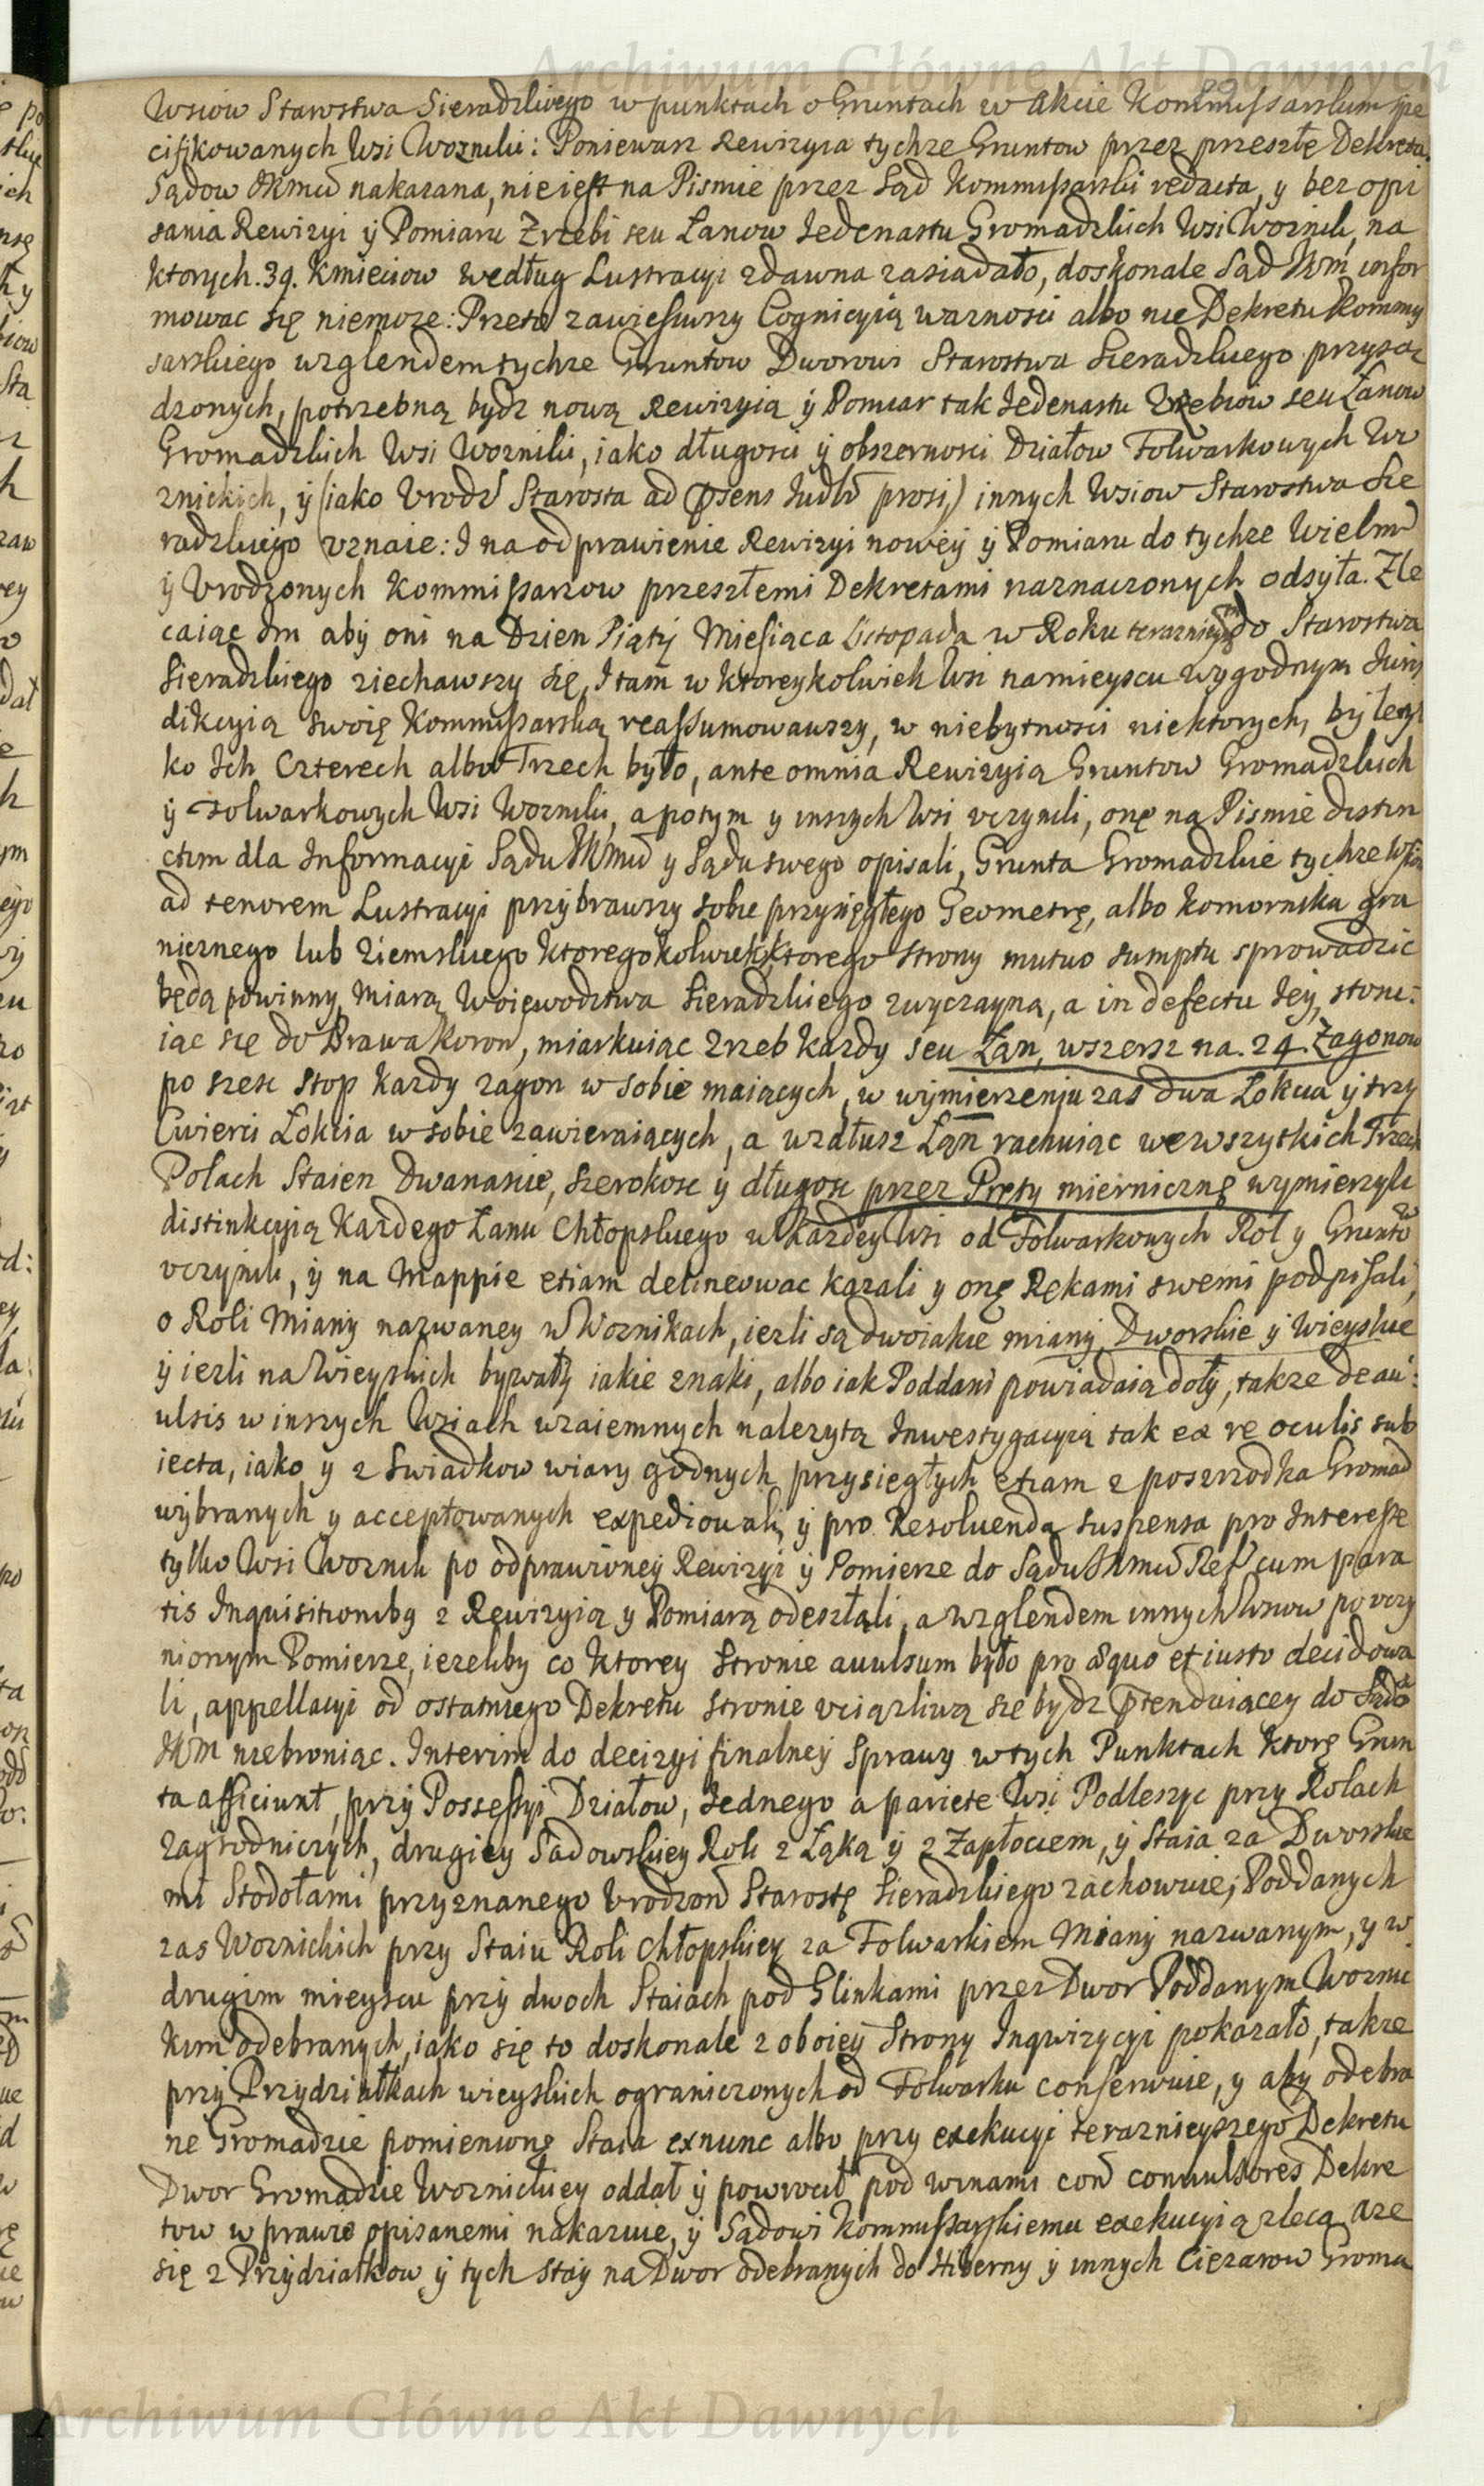 Archiwum Główne Akt Dawnych
Wsiow Starostwa Sieradzkiego w punktach o Gruntach w Akcie Kommissarskim spe
cifikowanych Wsi Wozniki: Poniewasz Rewizyia tychze Gruntow przez przeszłe Dekreta
Sądow JKMci nakazana, nie iest na Pismie przez Sąd Kommissarski redacta, y bez opi
sania Rewizyi ÿ Pomiaru Zrzebi seu Łanow Jedenastu Gromadzkich Wsi Woznik, na
ktorych 39. Kmieciow według Lustracyi zdawna zasiadało, doskonale Sąd JKM infor
mowac się niemoze: Przeto zawiesiwszy Cognicyią waznosci albo nie Dekretu Kommy
sarskiego wzglendem tychze Gruntow Dworowi Starostwa Sieradzkiego przysą
dzonych, potrzebną bydz nową Rewizyią ÿ Pomiar tak Jedenastu Zrzebiow seu Łanow
Gromadzkich Wsi Wozniki, iako długosci ÿ obszernosci Działow Folwarkowych Wo
znickich, ÿ (iako Vrodz Starosta ad praesens Judm prosi,) innych Wsiow Starostwa Sie
radzkiego vznaie: I na odprawienie Rewizyi nowey ÿ Pomiaru do tychze Wielm
ÿ Vrodzonych Kommissarzow przeszłemi Dekretami naznaczonych odsyła. Zle
caiąc Im abÿ oni na Dzien Piątÿ Miesiąca Listopada w Roku teraznieyszym do Starostwa
Sieradzkiego ziechawszy się, I tam w ktoreykolwiek Wsi na mieyscu wygodnym Juris
dikcyią swoię Kommissarską reassumowawszy, w niebytnosci niektorych, byle tyl
ko Ich Czterech albo Trzech było, ante omnia Rewizyią Gruntow Gromadzkich
ÿ Folwarkowych Wsi Wozniki, a potym y inszych Wsi vczynili, onę na Pismie distin
ctim dla Informacyi Sądu JKMci y Sądu swego opisali, Grunta Gromadzkie tychze Wsiow
ad tenorem Lustracyi przybrawszy sobie przysięgłego Geometrę, albo Komornika gra
nicznego lub Ziemskiego ktoregokolwiek, ktorego strony mutuo sumptu sprowadzic
będą powinny, Miarą Woiewodztwa Sieradzkiego zwyczayną, a in defectu Jey, stosu:
iąc się do Prawa Koron, miarkuiąc Zrzeb kazdy seu Łan, wszersz na. 24. Zagonow
po szesc stop kazdy zagon w sobie maiących, w wymierzeniu zas dwa Łokcia ÿ trzy
Cwierci Łokcia w sobie zawieraiących, a wzdłusz Łan rachuiąc we wszytkich Trzech
Polach Staien Dwanascie, szerokosc ÿ długosc przez Pręty miernicznę wymierzyli
distinkcyią Kazdego Łanu Chłopskiego w kazdey Wsi od Folwarkowych Rol y Gruntow
vczynili, ÿ na Mappie etiam delineowac kazali y onę Rękami swemi podpisali,
o Roli Mianÿ nazwaney w Woznikach, iezli są dwoiakie mianÿ, Dworskie ÿ Wieyskie
ÿ iezli na Wieyskich bywałÿ iakie znaki, albo iak Poddani powiadaią dołÿ, takze de av:
ulsis w inszych Wsiach wzaiemnych nalezytą Inwestygacyią tak ex re oculis sub
iecta, iako y z Swiadkow wiary godnych przysięgłych etiam z poszrzodka Gromad
wÿbranych y acceptowanych expediowali, ÿ pro Resoluenda suspensa pro Interesse
tylko Wsi Woznik po odprawioney Rewizyi ÿ Pomierze do Sądu JKMci Ref cum para
tis Inquisitionibq z Rewizyią y Pomiarą odeszłali, a wzglendem innych Wsiow po vczy
nionym Pomierze, iezeliby co ktorey Stronie auulsum było pro aequo et iusto decidowa
li, appellacyi od ostatniego Dekretu stronie vciązliwą się bydz praetenduiącey do Sądow
JKM niebroniąc. Interim do decizyi finalney Sprawy w tych Punktach ktorę Grun
ta afficiunt, przÿ Possessyi Działow, Jednego a pariete Wsi Podleszyc przy Rolach
Zagrodniczych, drugiey Sadowskiey Roli z Łąką ÿ z Zapłociem, ÿ Staia za Dworskie
mi Stodołami przyznanego Vrodzon Starostę Sieradzkiego zachowuie; Poddanych
zas Woznickich przy Staiu Roli Chłopskiey za Folwarkiem Mianÿ nazwanym, y w
drugim mieyscu przÿ dwoch Staiach pod Glinkami przez Dwor Poddanym Wozni
kim odebranych, iako się to doskonale z oboiey Strony Inqwizycyi pokazało, takze
przÿ Przydziałkach wieyskich ograniczonych od Folwarku conserwuie, y aby odebra
ne Gromadzie pomienionę Staia exnunc albo przy exekucyi teraznieyszego Dekretu
Dwor Gromadzie Woznickiey oddał ÿ powrocił pod winami con conuulsores Dekre
tow w prawie opisanemi nakazuie, ÿ Sądowi Kommissarskiemu exekucyią zleca. aze
się z Przydziałkow ÿ tych Stay na Dwor odebranych do Hiberny ÿ innych Ciezarow Groma
Archiwum Główne Akt Dawnych